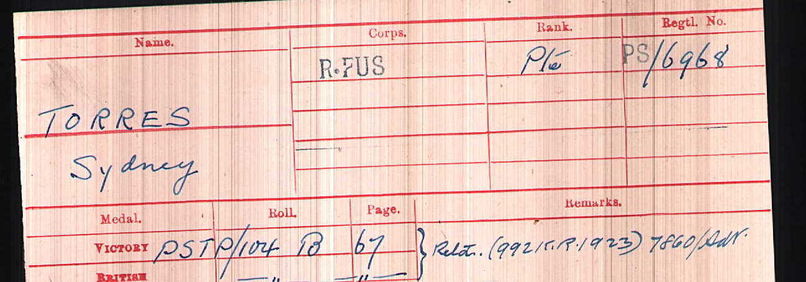 Name. Corps. Rank. Regtl. No.
R.FUS Pte PS/6968
TORRES
Sydney
Medal. Roll. Page. Remarks.
VICTORY PSTP/104 B 67 } Retn. (992 K.R. 1923) 7860/Adt.
BRITISH " "